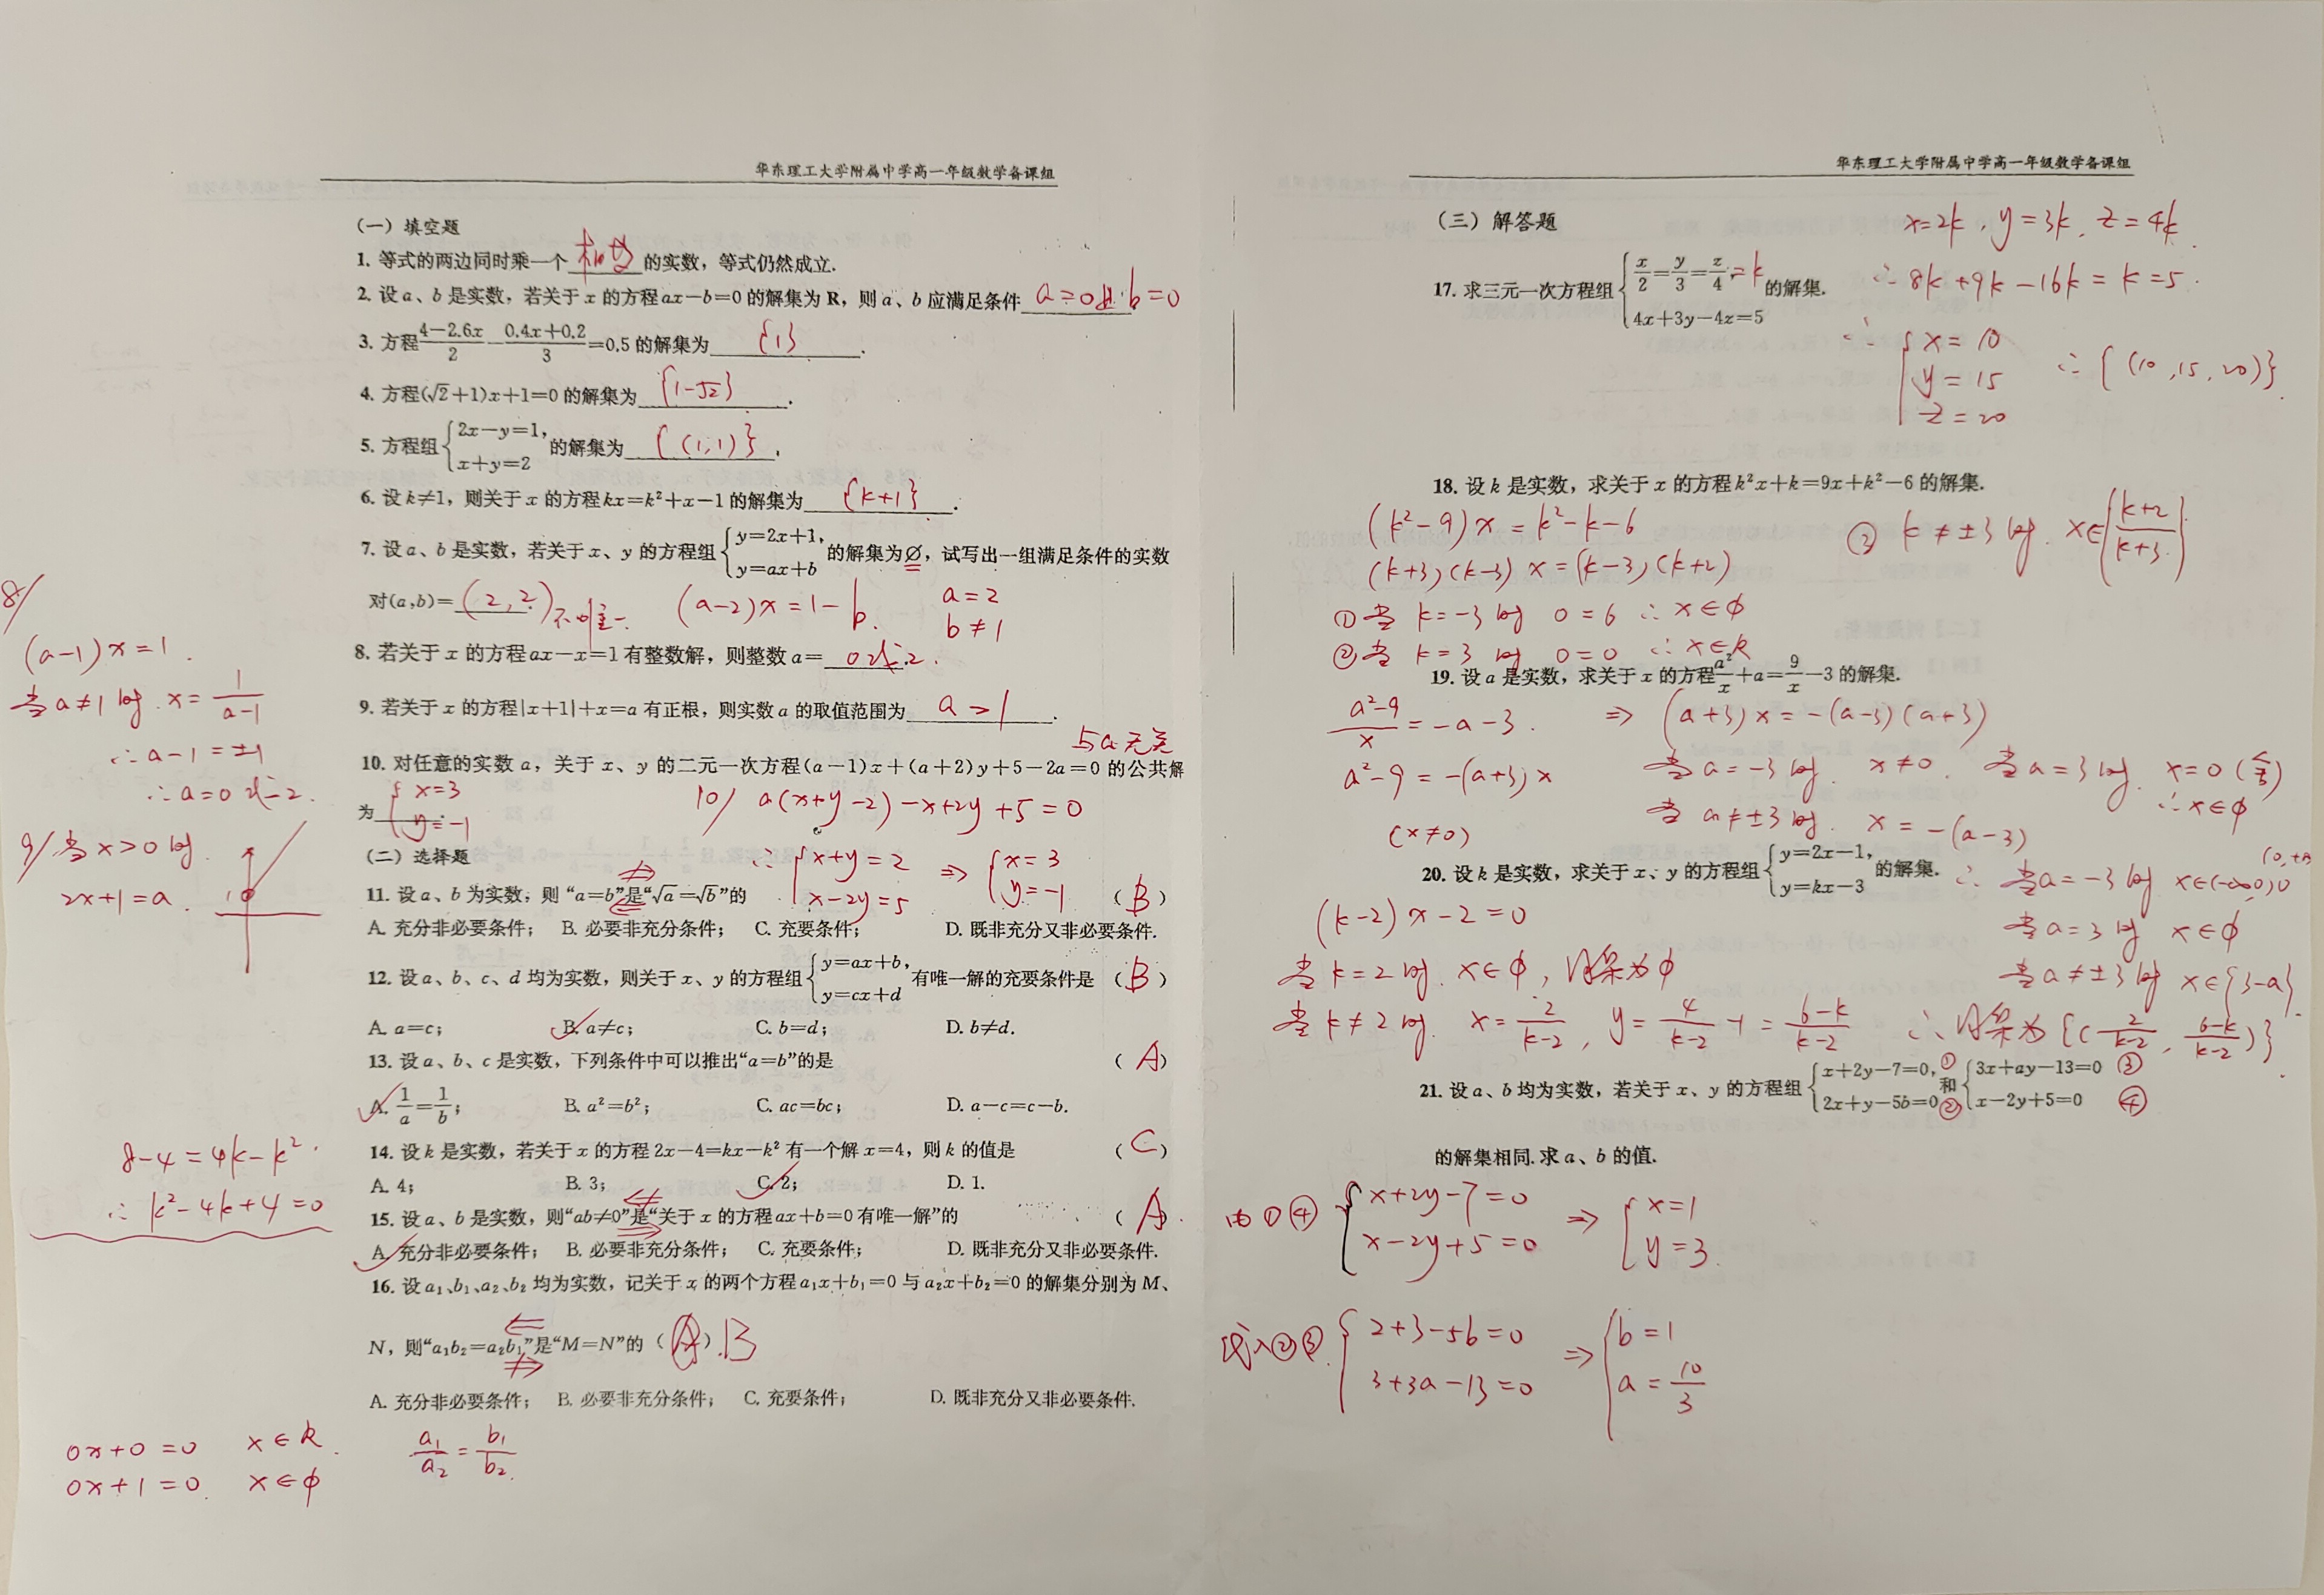 华东理工大学附属中学高一年级数学备课组
(一) 填空题
1. 等式的两边同时乘一个 相等 的实数，等式仍然成立.
2. 设a、b是实数，若关于x的方程ax-b=0的解集为R，则a、b应满足条件 a=0且b=0
3. 方程(4-2.6x)/2-(0.4x+0.2)/3=0.5的解集为 {1} .
4. 方程(√2+1)x+1=0的解集为 {1-√2} .
5. 方程组{2x-y=1, x+y=2 的解集为 {(1,1)} .
6. 设k≠1，则关于x的方程kx=k²+x-1的解集为 {k+1} .
7. 设a、b是实数，若关于x、y的方程组{y=2x+1, y=ax+b 的解集为∅，试写出一组满足条件的实数
对(a,b)= (2,2) . 不唯一. (a-2)x=1-b. a=2 b≠1
8. 若关于x的方程ax-x=1有整数解，则整数a= 0或2 .
8/
(a-1)x=1.
当a≠1时. x=1/(a-1)
∴a-1=±1
∴a=0或2.
9. 若关于x的方程|x+1|+x=a有正根，则实数a的取值范围为 a>1 .
与a无关
10. 对任意的实数a，关于x、y的二元一次方程(a-1)x+(a+2)y+5-2a=0的公共解
为 {x=3 y=-1 .
10/ a(x+y-2)-x+2y+5=0
∴{x+y=2 x-2y=5 ⇒ {x=3 y=-1
9/当x>0时.
2x+1=a.
1
(二) 选择题
11. 设a、b为实数，则“a=b”是“√a=√b”的 (B)
A. 充分非必要条件； B. 必要非充分条件； C. 充要条件； D. 既非充分又非必要条件.
12. 设a、b、c、d均为实数，则关于x、y的方程组{y=ax+b, y=cx+d 有唯一解的充要条件是 (B)
A. a=c； B. a≠c； C. b=d； D. b≠d.
13. 设a、b、c是实数，下列条件中可以推出“a=b”的是 (A)
A. 1/a=1/b； B. a²=b²； C. ac=bc； D. a-c=c-b.
14. 设k是实数，若关于x的方程2x-4=kx-k²有一个解x=4，则k的值是 (C)
A. 4； B. 3； C. 2； D. 1.
8-4=4k-k².
∴k²-4k+4=0
15. 设a、b是实数，则“ab≠0”是“关于x的方程ax+b=0有唯一解”的 (A).
A. 充分非必要条件； B. 必要非充分条件； C. 充要条件； D. 既非充分又非必要条件.
16. 设a₁、b₁、a₂、b₂均为实数，记关于x的两个方程a₁x+b₁=0与a₂x+b₂=0的解集分别为M、
N，则“a₁b₂=a₂b₁”是“M=N”的 ( ). B
A. 充分非必要条件； B. 必要非充分条件； C. 充要条件； D. 既非充分又非必要条件.
0x+0=0 x∈R.
0x+1=0. x∈∅
a₁/a₂=b₁/b₂.
华东理工大学附属中学高一年级数学备课组
(三) 解答题
x=2k, y=3k, z=4k.
17. 求三元一次方程组{x/2=y/3=z/4, =k 4x+3y-4z=5 的解集.
∴8k+9k-16k=k=5.
∴{x=10 y=15 z=20
∴{(10,15,20)}.
18. 设k是实数，求关于x的方程k²x+k=9x+k²-6的解集.
(k²-9)x=k²-k-6
(k+3)(k-3)x=(k-3)(k+2)
①当k=-3时 0=6 ∴x∈∅
②当k=3时 0=0 ∴x∈R
③ k≠±3时. x∈{(k+2)/(k+3)}
19. 设a是实数，求关于x的方程a²/x+a=9/x-3的解集.
(a²-9)/x=-a-3. ⇒ (a+3)x=-(a-3)(a+3)
a²-9=-(a+3)x
(x≠0)
当a=-3时. x≠0. 当a=3时. x=0(舍)
∴x∈∅
当a≠±3时. x=-(a-3)
∴当a=-3时 x∈(-∞,0)∪(0,+∞)
当a=3时 x∈∅
当a≠±3时 x∈{3-a}
20. 设k是实数，求关于x、y的方程组{y=2x-1, y=kx-3 的解集.
(k-2)x-2=0
当k=2时. x∈∅, 解集为∅
当k≠2时. x=2/(k-2), y=4/(k-2)-1=(6-k)/(k-2) ∴解集为{(2/(k-2), (6-k)/(k-2))}.
21. 设a、b均为实数，若关于x、y的方程组{x+2y-7=0,① 2x+y-5b=0② 和{3x+ay-13=0 ③ x-2y+5=0 ④
的解集相同.求a、b的值.
由①④ {x+2y-7=0 x-2y+5=0 ⇒ {x=1 y=3.
代入②③ {2+3-5b=0 3+3a-13=0 ⇒ {b=1 a=10/3